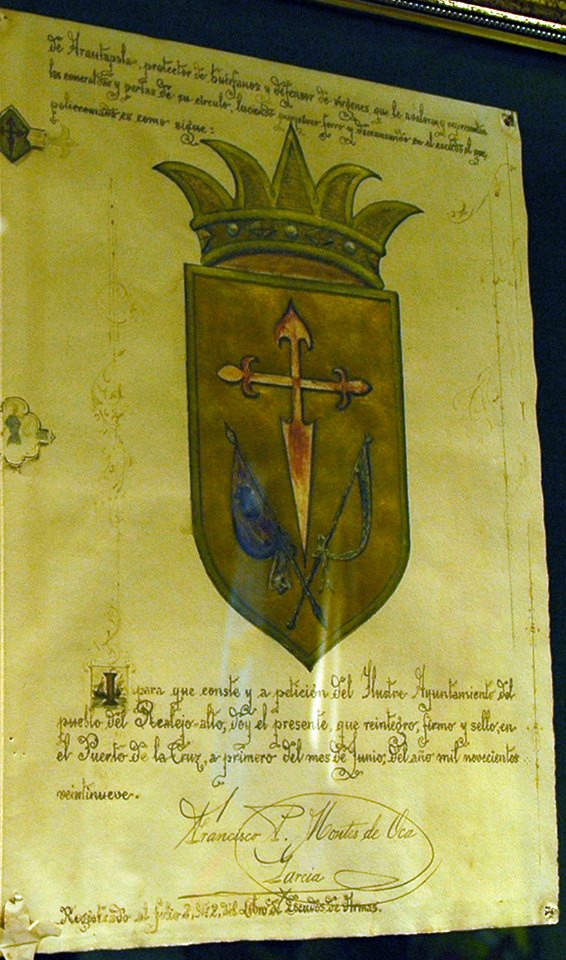 de Arautapala, protector de huérfanos y defensor de vírgenes, que le avaloran y representan
las esmeraldas y perlas de su círculo, luciendo forro y descansando en el escudo el que,
policromado es como sigue:
I para que conste y a petición del Ilustre Ayuntamiento del
pueblo del Realejo-alto, doy el presente, que reintegro, firmo y sello, en
el Puerto de la Cruz, a primero del mes de Junio, del año mil novecientos
veintinueve.
Francisco P. Montes de Oca
García
Registrado al folio 2, del Libro de Escudos de Armas.